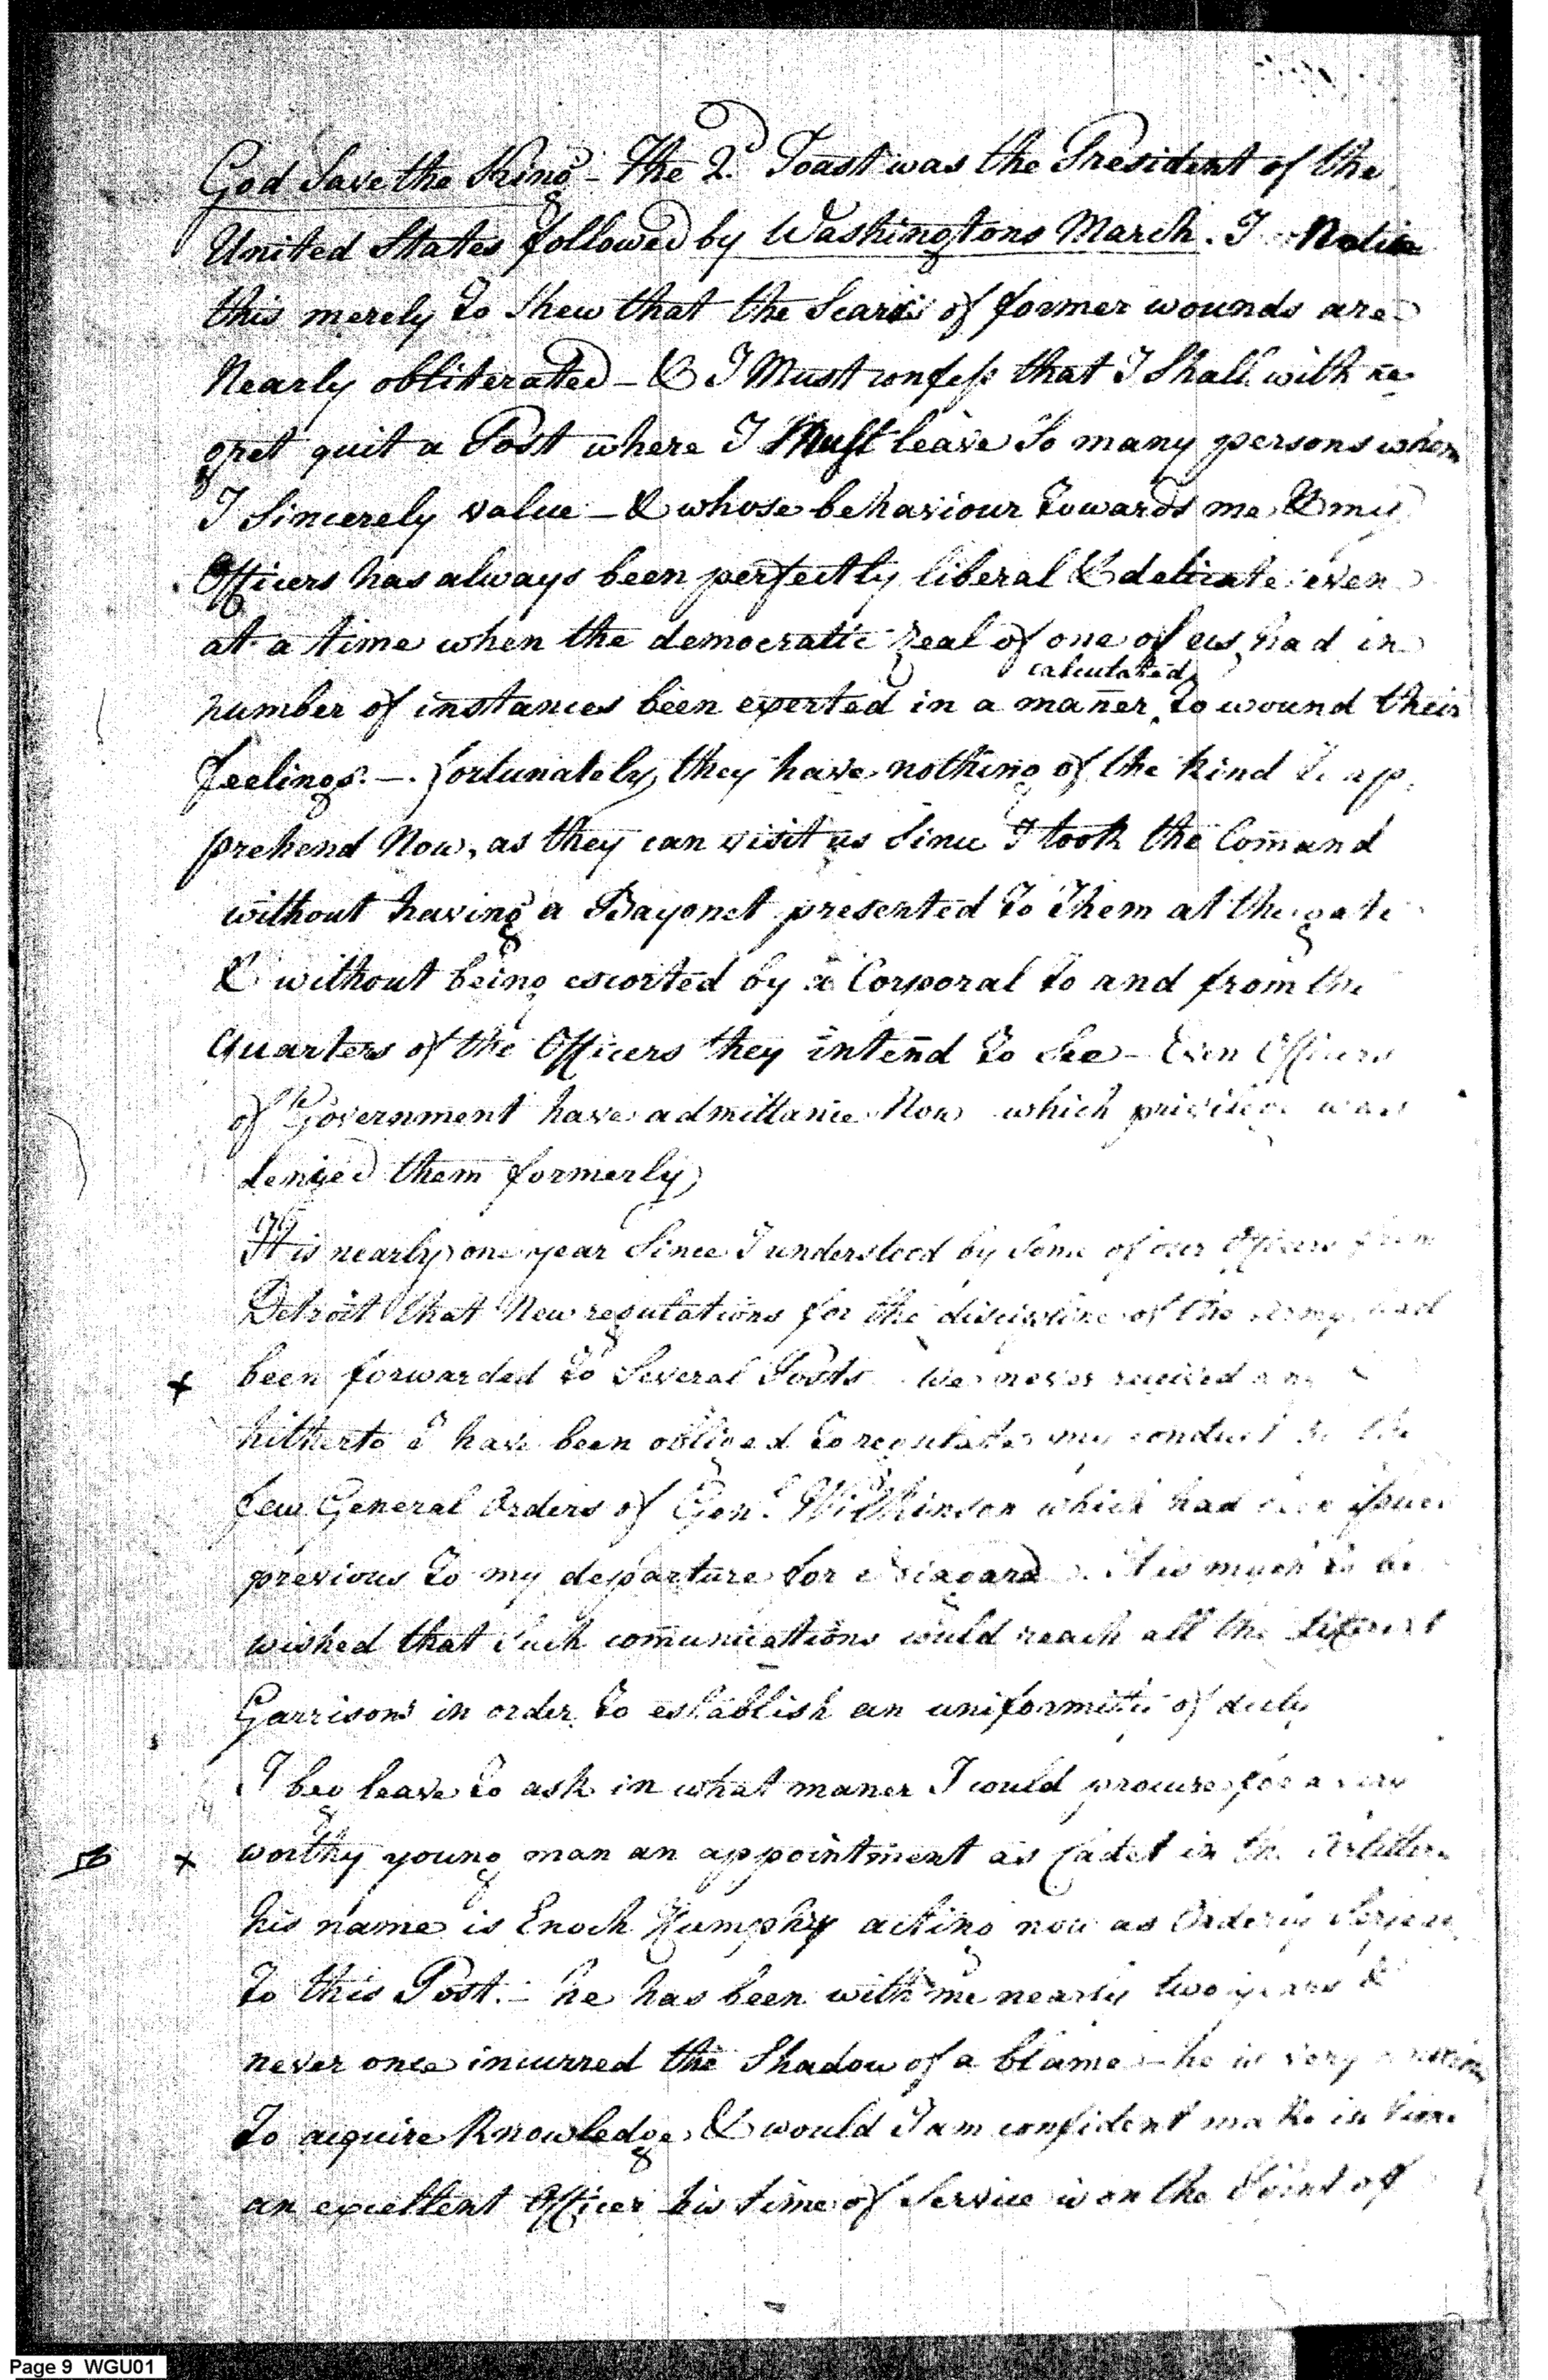 God Save the King - The 2d. Toast was the President of the
United States followed by Washingtons March. I Notice
this merely to Shew that the Scars of former wounds are
Nearly obliterated - & I Must confess that I Shall with re-
gret quit a Post where I Must leave So many persons whom
I Sincerely value - & whose behaviour towards me & my
Officers has always been perfectly liberal & delicate even
at a time when the democratic zeal of one of us had in
calculated
number of instances been exerted in a mañer to wound their
feelings. - . fortunately, they have nothing of the kind to ap-
prehend Now, as they can visit us Since I took the Comand
without having a Bayonet presented to Them at the gate
& without being escorted by a Corporal to and from the
Quarters of the Officers they intend to See - Even Officers
of Government have admittance Now which privilege was
denied them formerly
It is nearly one year Since I understood by Some of our Officers from
Detroit that New regulations for the discipline of the Army had
+ been forwarded to Several Posts We never received any &
hitherto I have been obliged to regulate my conduct the
few General Orders of Genl. Wilkinson which had been issued
previous to my departure for Niagara. It is much to be
wished that Such comunications could reach all the different
Garrisons in order to establish an uniformity of duty
I beg leave to ask in what maner I could procure for a very
+ worthy young man an appointment as Cadet in the Artillery
his name is Enoch Humphy acting now as Orderly Serjeant
to this Post. - he has been with me nearly two years &
never once incurred the Shadow of a blame - he is very
to acquire Knowledge & would I am confident make in time
an excellent Officer his time of Service is on the Point of
Page 9 WGU01